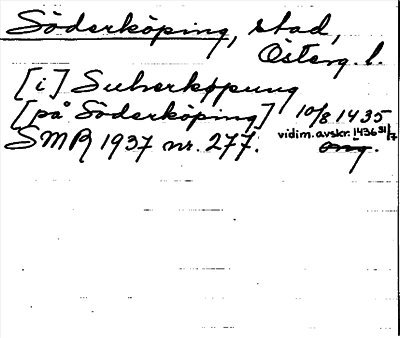 Söderköping, stad,
Österg. l.
[i] Suderkøpung
[på Söderköping] 10/8 1435
SMR 1937 nr. 277. vidim. avskr. 1436 31/7
orig.